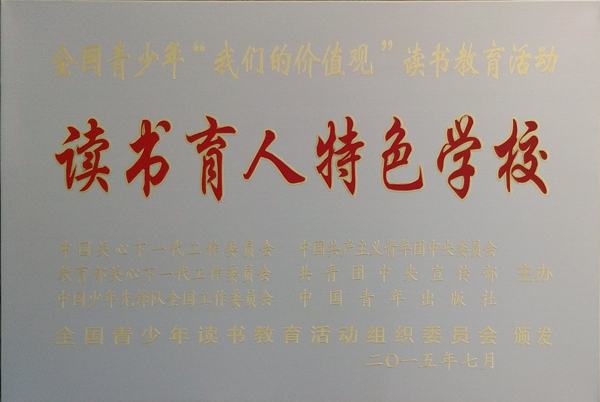 全国青少年“我们的价值观”读书教育活动
读书育人特色学校
中国关心下一代工作委员会 中国共产主义青年团中央委员会
教育部关心下一代工作委员会 共青团中央宣传部 主办
中国少年先锋队全国工作委员会 中国青年出版社
全国青少年读书教育活动组织委员会 颁发
二〇一五年七月